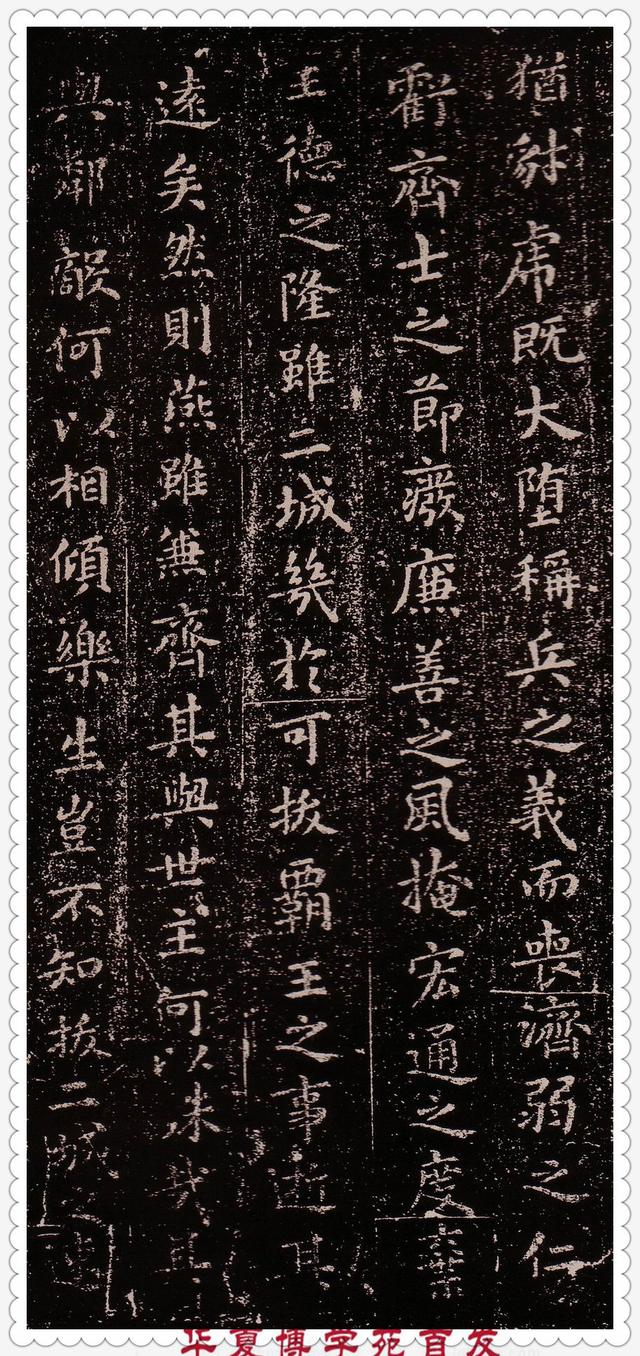 猶豺虎既大堕稱兵之義而喪濟弱之仁
虧齊士之節廢廉善之風掩宏通之度棄
王德之隆雖二城幾於可拔霸王之事逝其
遠矣然則燕雖兼齊其與世主何以殊哉其
與鄰敵何以相傾樂生豈不知拔二城之速
华夏博学苑首发